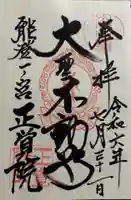 奉拝
令和六年
七月三十一日
大聖不動明王
能登一ノ宮
正覚院